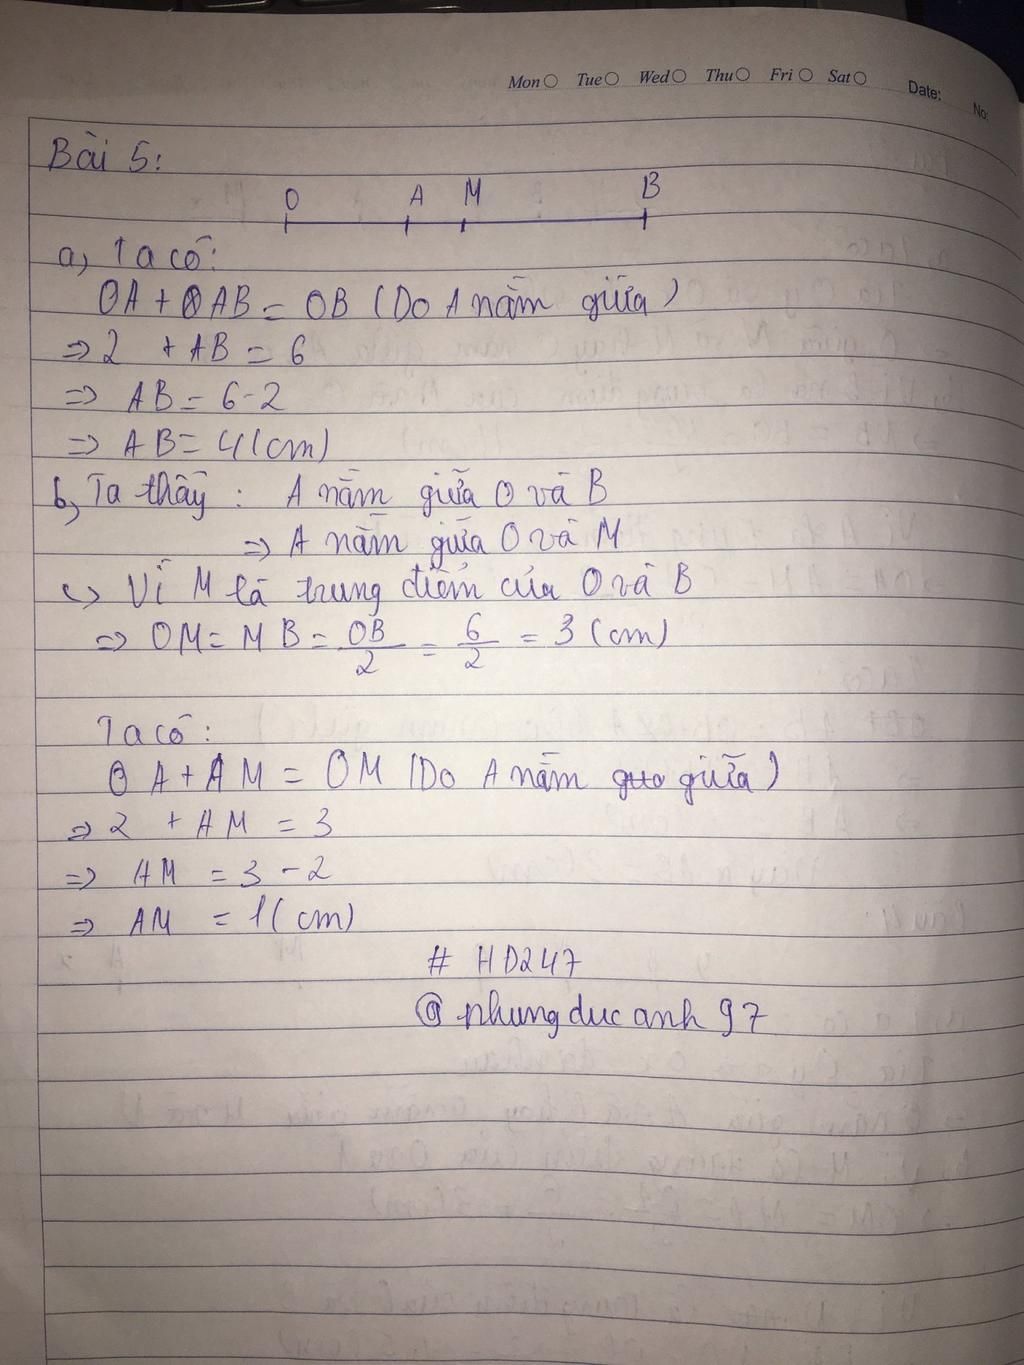 Mon Tue Wed Thu Fri Sat Date: No:
Bài 5:
O A M B
a, Ta có:
OA + AB = OB (Do A nằm giữa)
=> 2 + AB = 6
=> AB = 6 - 2
=> AB = 4 (cm)
b, Ta thấy : A nằm giữa O và B
=> A nằm giữa O và M
c, Vì M là trung điểm của O và B
=> OM = MB = OB/2 = 6/2 = 3 (cm)
Ta có :
OA + AM = OM (Do A nằm giữa)
=> 2 + AM = 3
=> AM = 3 - 2
=> AM = 1 (cm)
# HD247
@nhungducanh97